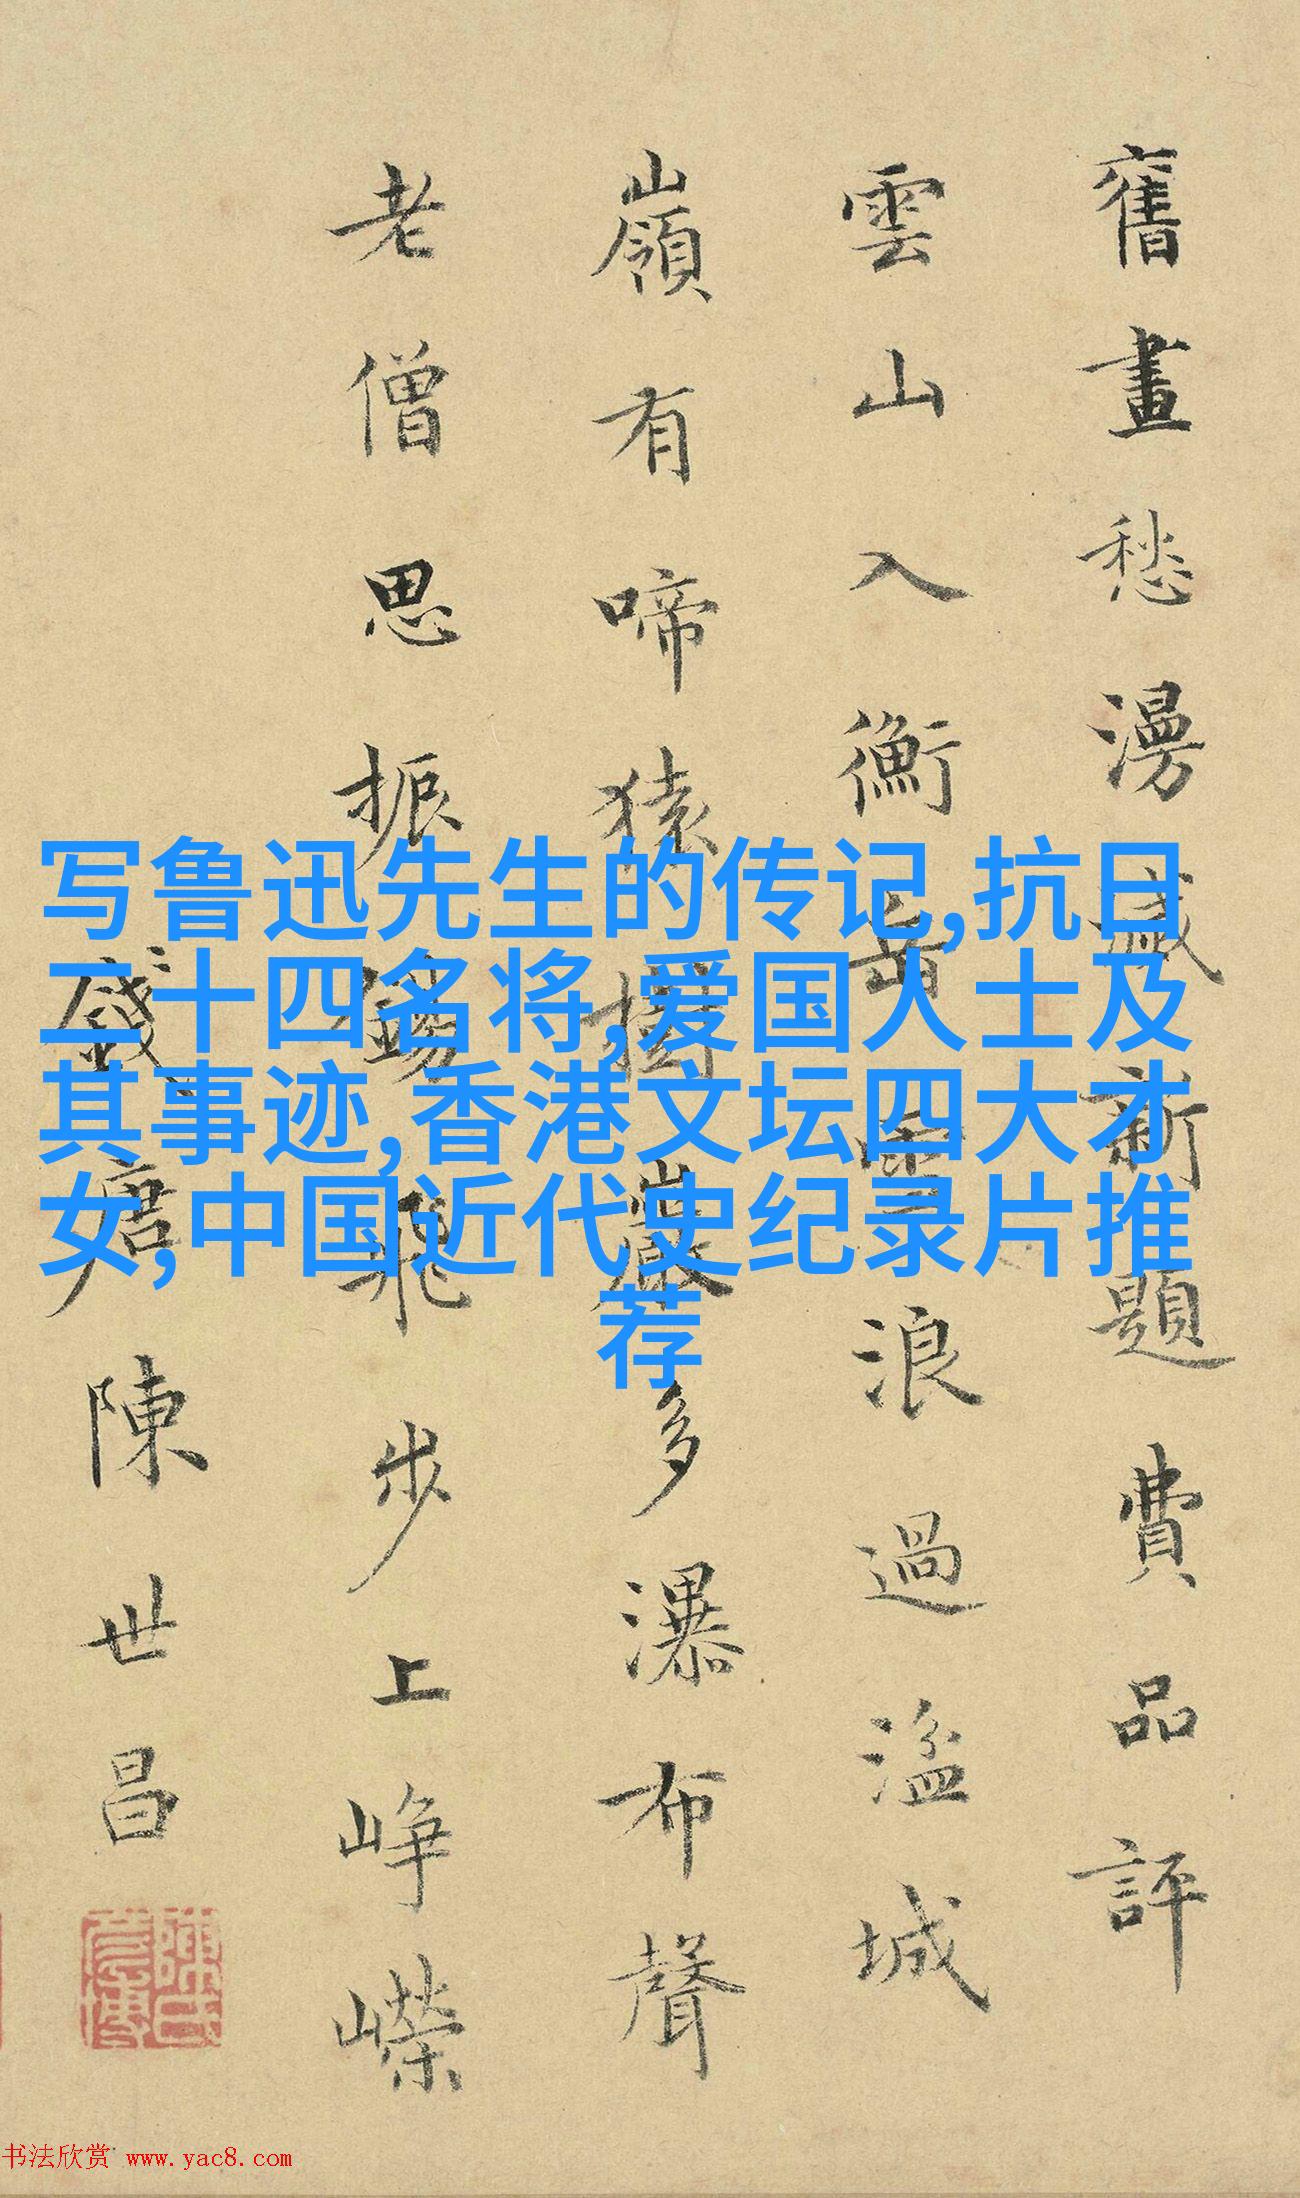 舊畫愁漫滅新題費品評
雲山入衡岳雪浪過湓城
嶺有啼猿樹巖多瀑布聲
老僧思振錫飛步上崢嶸
錢唐陳世昌
写鲁迅先生的传记,抗日
二十四名将,爱国人士及
其事迹,香港文坛四大才
女,中国近代史纪录片推
荐
书法欣赏 www.yac8.com